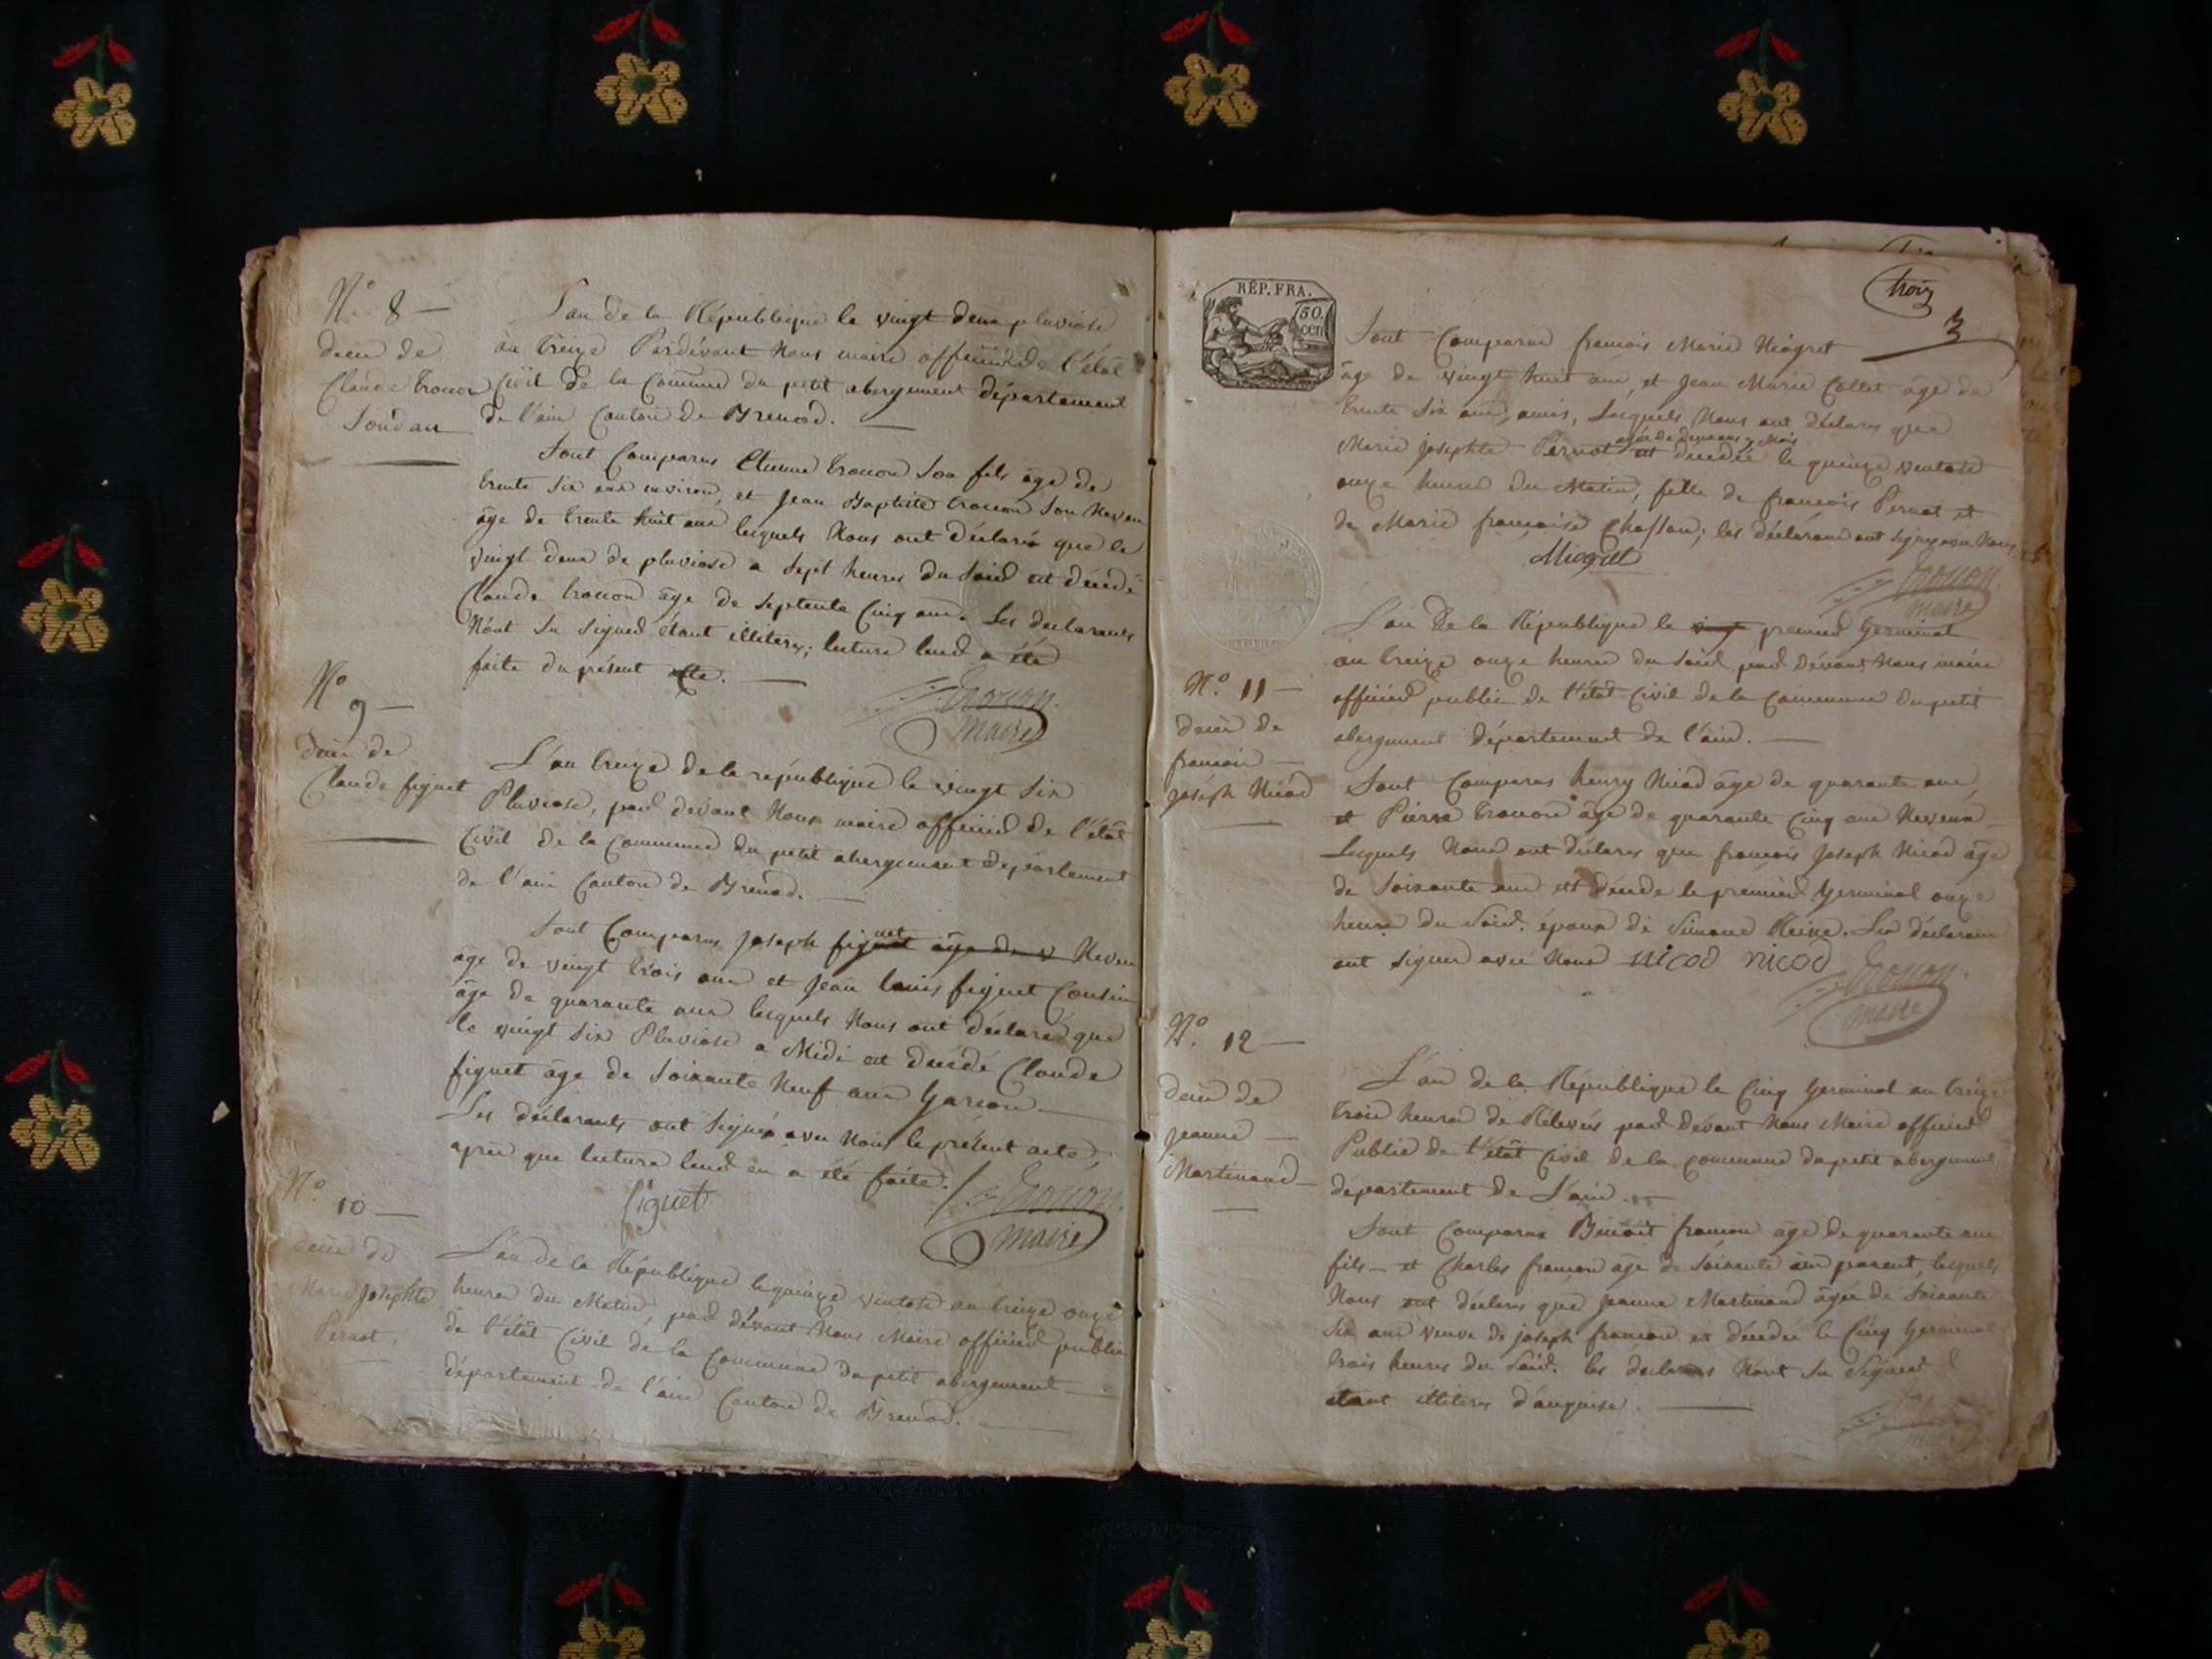 N.º 8 —
décès de
Claude trocon
Soudan
L'an de la République le vingt deux pluviose
an treize Pardevant Nous maire officier de l'état
Civil de la Commune du petit abergement département
de l'ain Canton de Brenod. —
Sont Comparus Etienne trocon Son fils âgé de
trente Six ans environ, et Jean Baptiste trocon Son Neveu
âgé de trente huit ans lesquels Nous ont déclaré que le
vingt deux de pluviose a Sept heures du Soir est décédé
Claude trocon âgé de Septente Cinq ans. Les declarants
N'ont Su Signer étant illiteres; lecture leur a été
faite du présent acte. —
Trocon
maire
N.º
9 —
décès de
Claude figuet
L'an treize de la république le vingt Six
Pluviose, par devant Nous maire officier de l'état
Civil de la Commune du petit abergement département
de l'ain Canton de Brenod. —
Sont Comparus Joseph figuet âgé de v Neveu
âgé de vingt trois ans et Jean louis figuet Cousin
âgé de quarante ans lesquels Nous ont déclaré que
le vingt Six Pluviose a Midi est décédé Claude
figuet âgé de Soixante Neuf ans Garcon —
Les déclarants ont Signés avec Nous le présent acte,
après que lecture leur en a été faite.
figuet
Trocon
maire
N.º
10 —
décès de
Marie Josephte
Pernot.
L'an de la République le quinze ventose an treize onze
heures du Matin, par dévant Nous Maire officier public
de l'état Civil de la Commune du petit abergement —
département de l'ain Canton de Brenod. —
RÉP. FRA.
50.
cen.
trois
3
Sont Comparus francois Marie Miogret
âgé de vingt huit ans, et Jean Marie Collet âgé de
trente Six ans, amis, Lesquels Nous ont déclarés que
agée de deux ans 7 Mois
Marie josephte Pernot est décédée le quinze ventose
onze heures du Matin, fille de francois Pernot et
de Marie francoise Chasson; les déclarans ont Signés avec Nous
Miogret
Trocon
maire
N.º 11 —
décès de
francois —
Joseph Nicod
L'an de la République le premier Germinal
an treize onze heures du Soir par dévant Nous maire
officier public de l'état Civil de la Commune du petit
abergement département de l'ain. —
Sont Comparus henry Nicod âgé de quarante ans,
et Pierre trocon âgé de quarante Cinq ans Neveux —
Lesquels Nous ont déclarés que francois Joseph Nicod âgé
de Soixante ans est décédé le premier Germinal onze
heures du Soir. époux de Simone Reine. Les déclarans
ont Signer avec Nous nicod nicod
Trocon.
maire
N.º 12 —
décès de
jeanne —
Martinand —
L'an de la République le Cinq Germinal an treize
trois heures de Rélevés par dévant Nous Maire officier
Public de l'état Civil de la Commune du petit abergement
département de L'ain.
Sont Comparus Bénoit francon âgé de quarante ans
fils — et Charles francon âgé de Soixante ans parent, lesquels
Nous ont déclarés que jeanne Martinand âgée de Soixante
Six ans veuve de joseph francon est décédée le Cinq Germinal
trois heures du Soir. les déclarans N'ont Su Signer
étant illiteres d'enquise. —